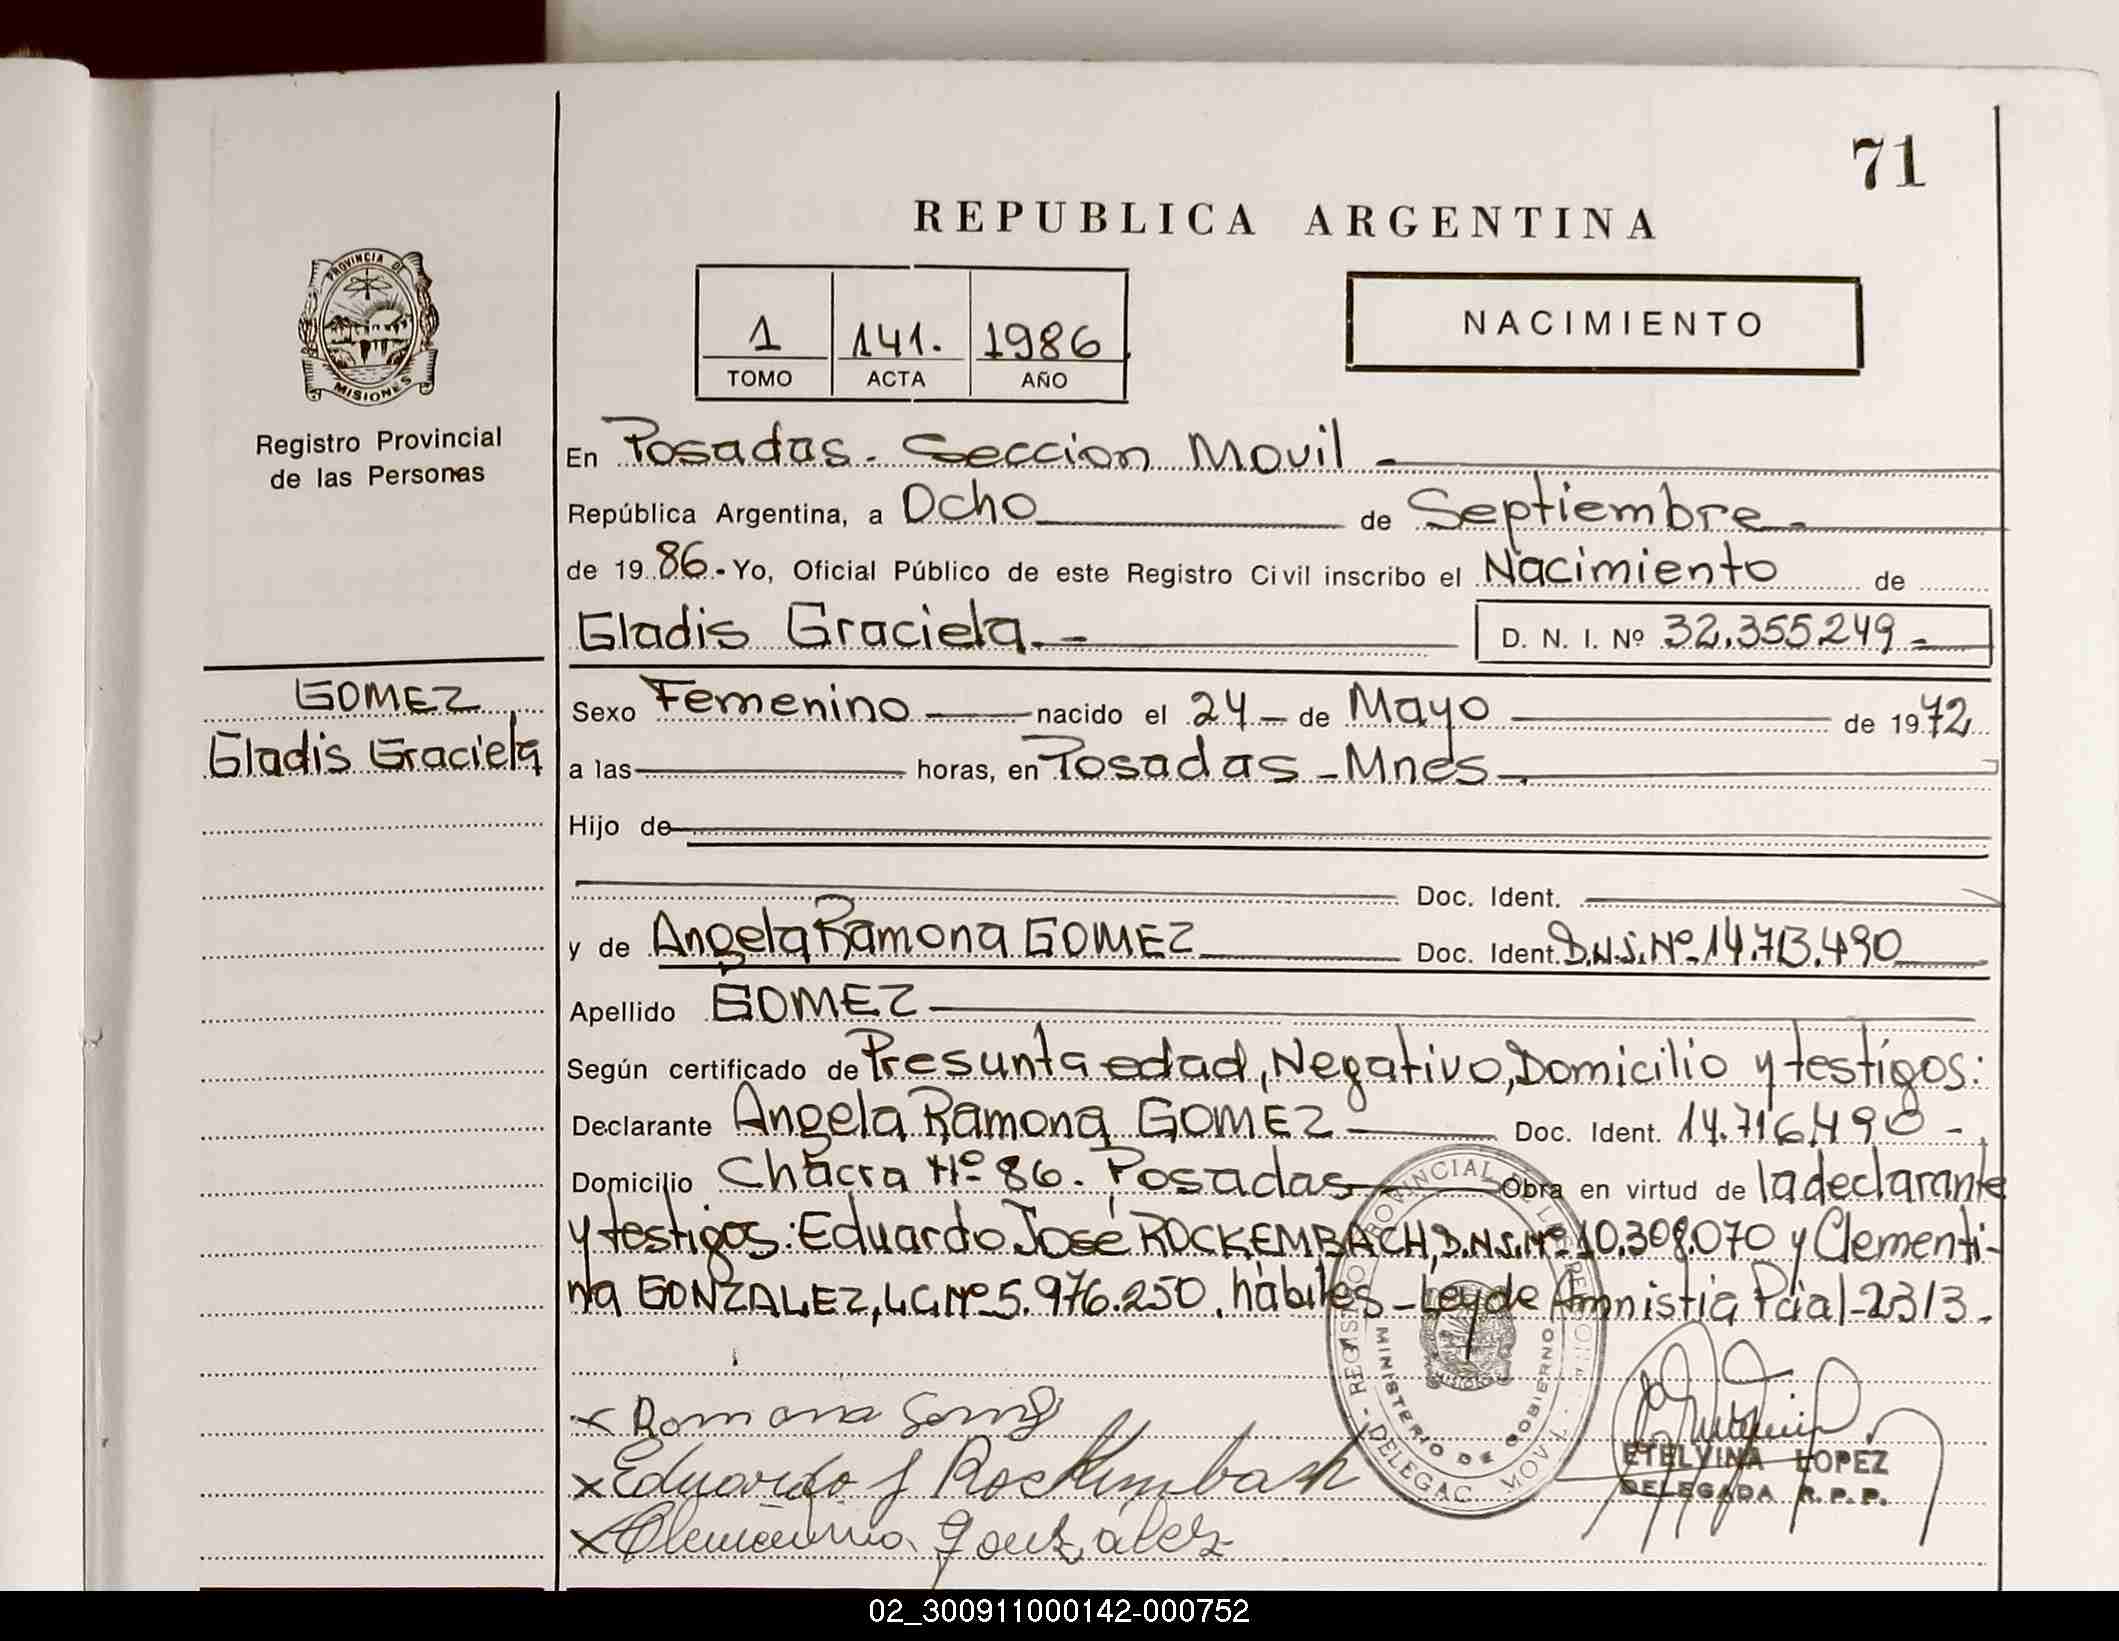 71
REPUBLICA ARGENTINA
PROVINCIA DE
MISIONES
Registro Provincial
de las Personas
1 141. 1986
TOMO ACTA AÑO
NACIMIENTO
En Posadas. Seccion Movil
República Argentina, a Ocho de Septiembre
de 1986.- Yo, Oficial Público de este Registro Civil inscribo el Nacimiento de
Gladis Graciela.- D. N. I. Nº 32.355.249-
GOMEZ
Gladis Graciela
Sexo Femenino nacido el 24 de Mayo de 1972
a las horas, en Posadas - Mnes.
Hijo de
Doc. Ident.
y de Angela Ramona GOMEZ Doc. Ident. D.N.I. Nº 14.713.490
Apellido GOMEZ
Según certificado de Presunta edad, Negativo, Domicilio y testigos:
Declarante Angela Ramona GOMEZ Doc. Ident. 14.716.490-
Domicilio Chacra Nº 86. Posadas Obra en virtud de la declarante
y testigos: Eduardo José ROCKEMBACH, D.N.I. Nº 10.308.070 y Clementi-
na GONZALEZ, L.C. Nº 5.976.250. hábiles - Ley de Amnistia Pcial - 2313.
x Ramona
x Eduardo J Rockembach
x Clementina González
REGISTRO PROVINCIAL DE LAS PERSONAS
MINISTERIO DE GOBIERNO
DELEGAC. MOVIL
ETELVINA LOPEZ
DELEGADA R.P.P.
02_300911000142-000752